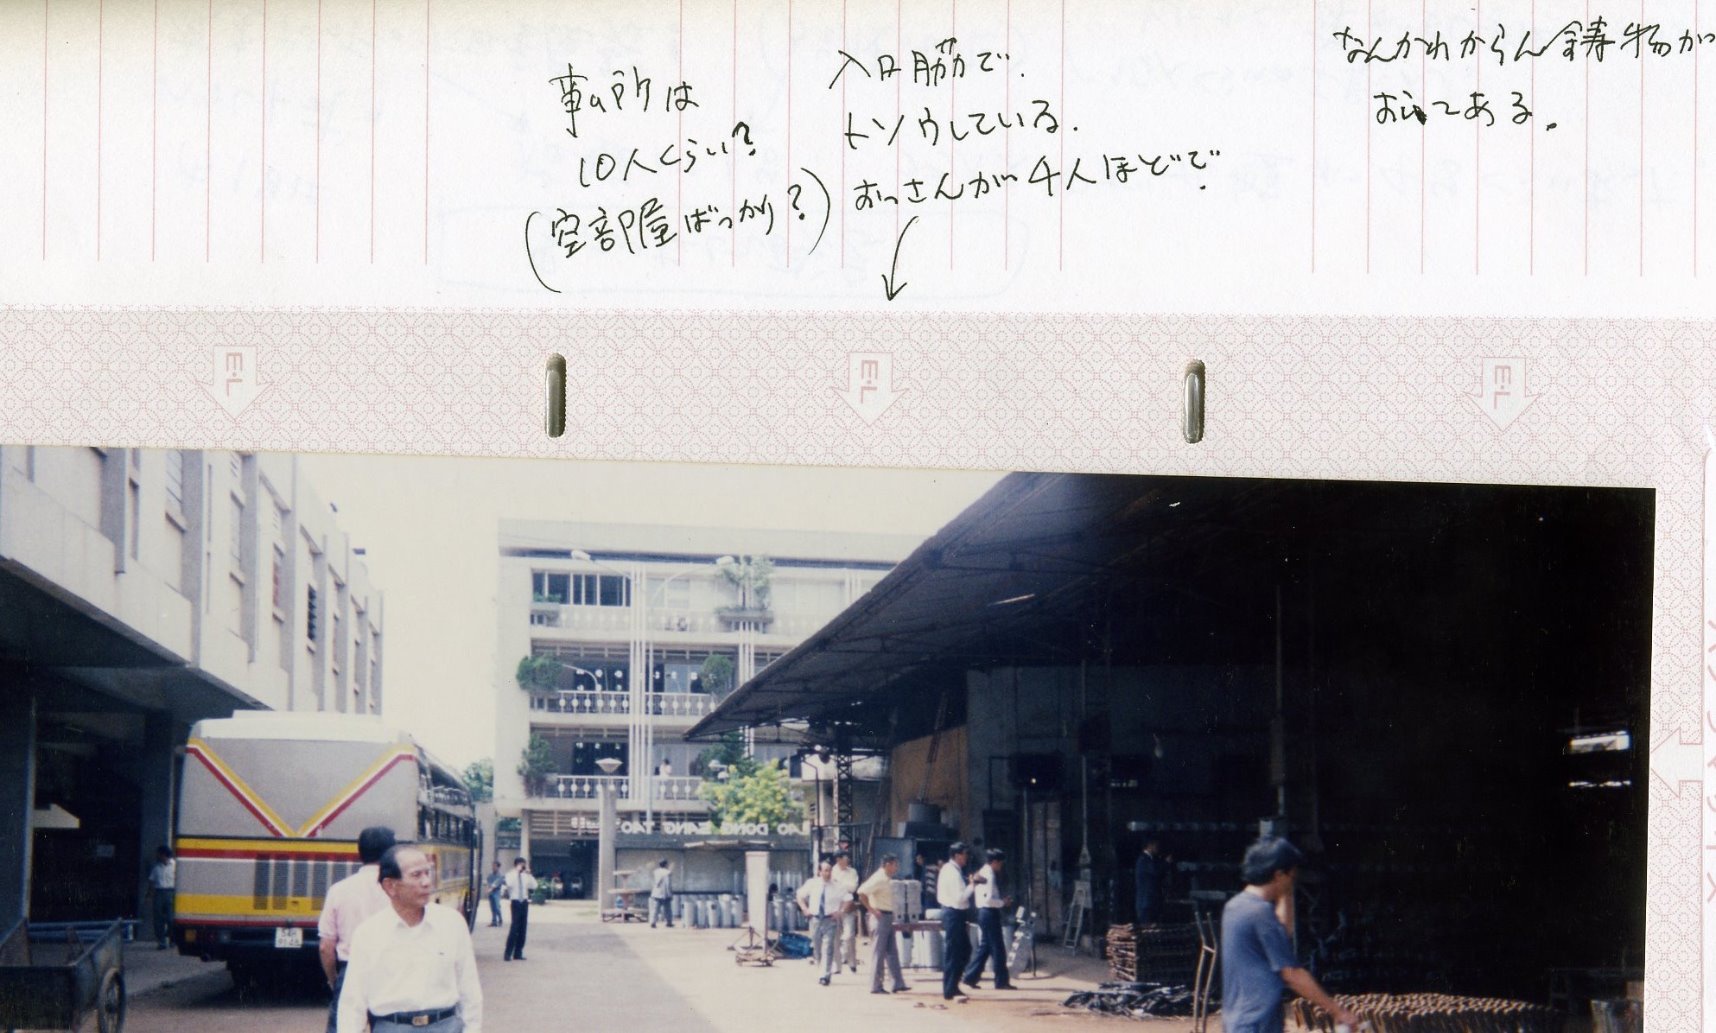 事ム所は
10人くらい?
(空部屋ばっかり?)
入口脇で.
トソウしている.
おっさんが4人ほどで
なんかわからん鋳物が
おいてある。
E・L
E・L
E・L
LAO DONG SANG TAO